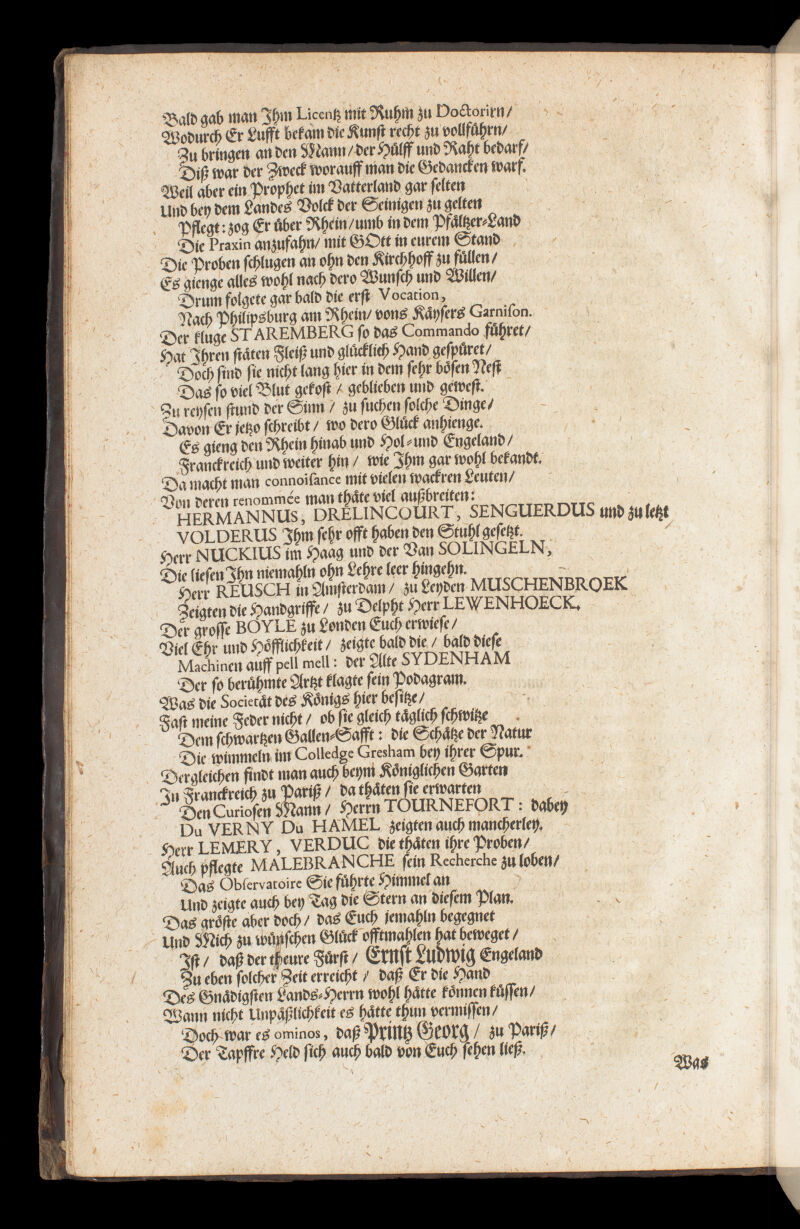 Bald gab man Jhm Licentz mit Ruhm zu Doctorirn/
Wodurch Er Lufft bekam die Kunst recht zu vollführn/
Zu bringen an den Mann/ der Hülff und Raht bedarf/
Diß war der Zweck worauff man die Gedancken warf.
Weil aber ein Prophet im Vatterland gar selten
Und bey dem Landes Volck der Seinigen zu gelten
Pflegt: zog Er über Rhein/ umb in dem Pfältzer-Land
Die Praxin anzufahn/ mit GOtt in eurem Stand
Die Proben schlugen an ohn den Kirchhoff zu füllen/
Es gienge alles wohl nach dero Wunsch und Willen/
Drum folgete gar bald die erst Vocation,
Nach Philipsburg am Rhein/ vons Käysers Garnison.
Der kluge STAREMBERG so das Commando führet/
Hat Jhren stäten Fleiß und glücklich Hand gespüret/
Doch sind sie nicht lang hier in dem sehr bösen Nest
Das so viel Blut gekost / geblieben und gewest.
Zu reysen stund der Sinn / zu suchen solche Dinge/
Davon Er jetzo schreibt / wo dero Glück anhienge.
Es gieng den Rhein hinab und Hol-und Engeland/
Franckreich und weiter hin / wie Jhm gar wohl bekandt.
Da macht man connoisance mit vielen wackren Leuten/
Von deren renommée man thäte viel außbreiten:
HERMANNUS, DRELINCOURT, SENGUERDUS und zu letzt
VOLDERUS Jhm sehr offt haben den Stuhl gesetzt.
Herr NUCKIUS im Haag und der Van SOLINGELN,
Die liesen Jhn niemahln ohn Lehre leer hingehn.
Herr REUSCH in Amsterdam / zu Leyden MUSCHENBROEK
Zeigten die Handgriffe / zu Delpht Herr LEWENHOECK.
Der grosse BOYLE zu Londen Euch erwiese/
Viel Ehr und Höfflichkeit / zeigte bald die / bald diese
Machinen auff pell mell: der Alte SYDENHAM
Der so berühmte Artzt klagte sein Podagram.
Was die Societät des Königs hier besitze/
Fast meine Feder nicht / ob sie gleich täglich schwitze
Dem schwartzen Gallen-Safft: die Schätze der Natur
Die wimmeln im Colledge Gresham bey ihrer Spur.
Dergleichen findt man auch beym Königlichen Garten
Jn Franckreich zu Pariß / da thäten sie erwarten
Den Curiosen Mann / Herrn TOURNEFORT: dabey
Du VERNY Du HAMEL zeigten auch mancherley.
Herr LEMERY, VERDUC die thäten ihre Proben/
Auch pflegte MALEBRANCHE sein Recherche zu loben/
Das Observatoire Sie führte Himmel an
Und zeigte auch bey Tag die Stern an diesem Plan.
Das gröste aber doch / das Euch jemahln begegnet
Und Mich zu wünschen Glück offtmahlen hat beweget /
Jst / daß der theure Fürst / Ernst Ludwig Engeland
Zu eben solcher Zeit erreicht / daß Er die Hand
Des Gnädigsten Lands-Herrn wohl hätte können küssen/
Wann nicht Unpäßlichkeit es hätte thun vermissen/
Doch war es ominos, daß Printz Georg / zu Pariß/
Der Tapffre Held sich auch bald von Euch sehen ließ.
Was